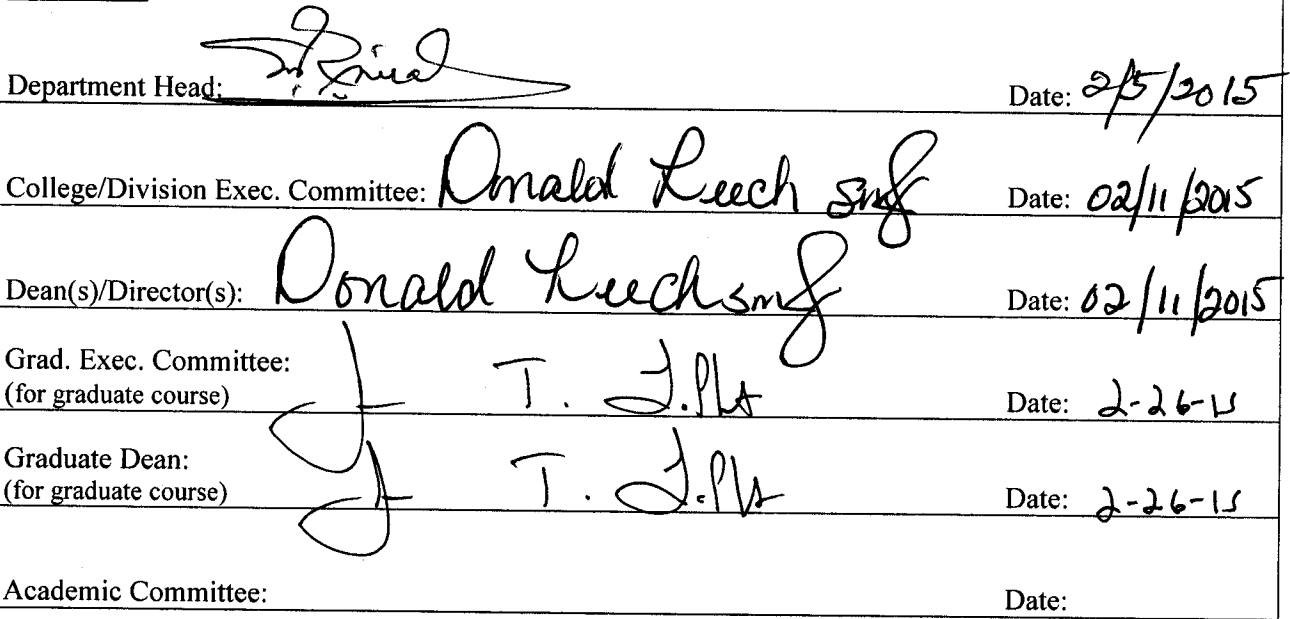 Department Head: Date: 2/5/2015
College/Division Exec. Committee: Donald Leech smf Date: 02/11/2015
Dean(s)/Director(s): Donald Leech smf Date: 02/11/2015
Grad. Exec. Committee:
(for graduate course) J T. Date: 2-26-15
Graduate Dean:
(for graduate course) J T. Date: 2-26-15
Academic Committee: Date: